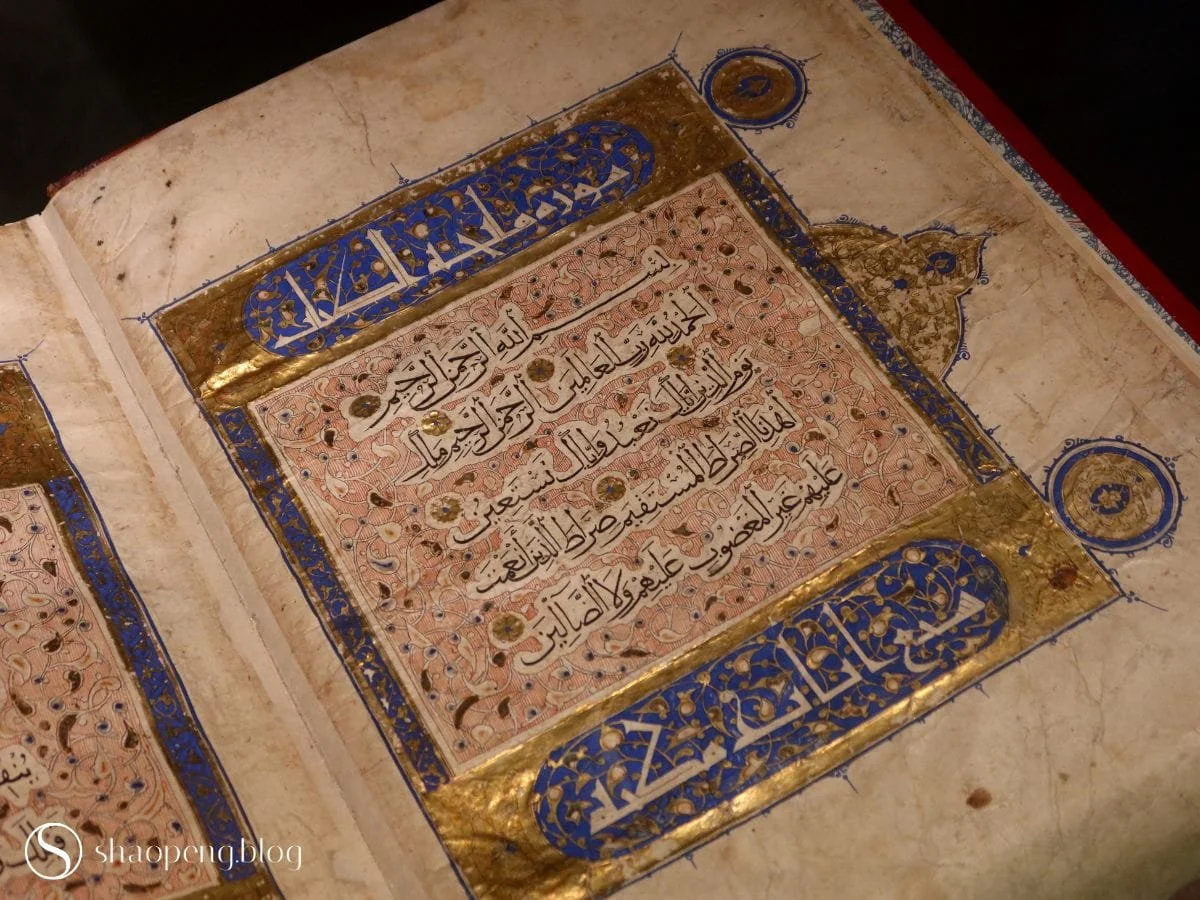 سورة فاتحة الكتاب
بسم الله الرحمن الرحيم
الحمد لله رب العالمين الرحمن الرحيم ملك
يوم الدين اياك نعبد واياك نستعين
اهدنا الصراط المستقيم صراط الذين انعمت
عليهم غير المغضوب عليهم ولا الضالين
سبع ايات مكية
shaopeng.blog